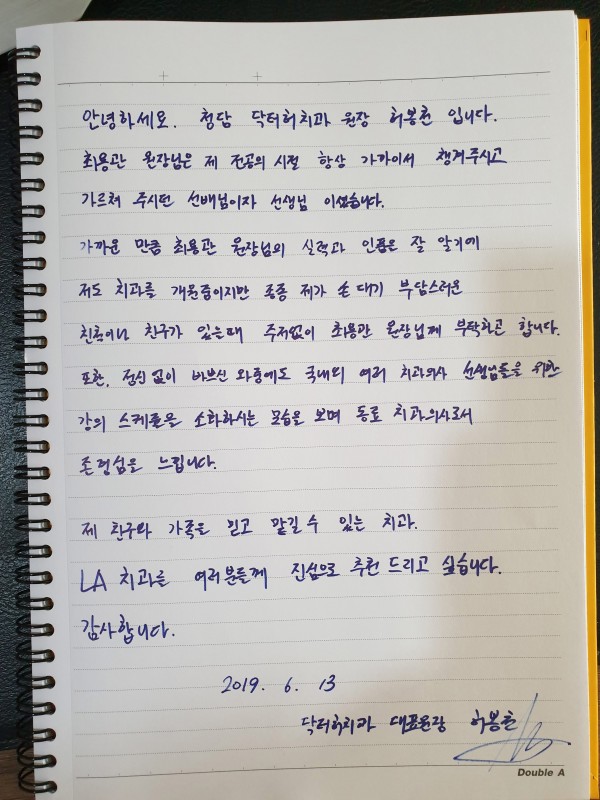 안녕하세요. 청담 닥터허치과 원장 허봉천 입니다.
최용관 원장님은 제 전공의 시절 항상 가까이서 챙겨주시고
가르쳐 주시던 선배님이자 선생님 이셨습니다.
가까운 만큼 최용관 원장님의 실력과 인품은 잘 알기에
저도 치과를 개원중이지만 종종 제가 손대기 부담스러운
친척이나 친구가 있을때 주저없이 최용관 원장님께 부탁하곤 합니다.
또한, 정신없이 바쁘신 와중에도 국내외 여러 치과의사 선생님들을 위한
강의 스케쥴을 소화하시는 모습을 보며 동료 치과의사로서
존경심을 느낍니다.
제 친구와 가족을 믿고 맡길 수 있는 치과.
LA 치과를 여러분들께 진심으로 추천 드리고 싶습니다.
감사합니다.
2019. 6. 13
닥터허치과 대표원장 허봉천
Double A